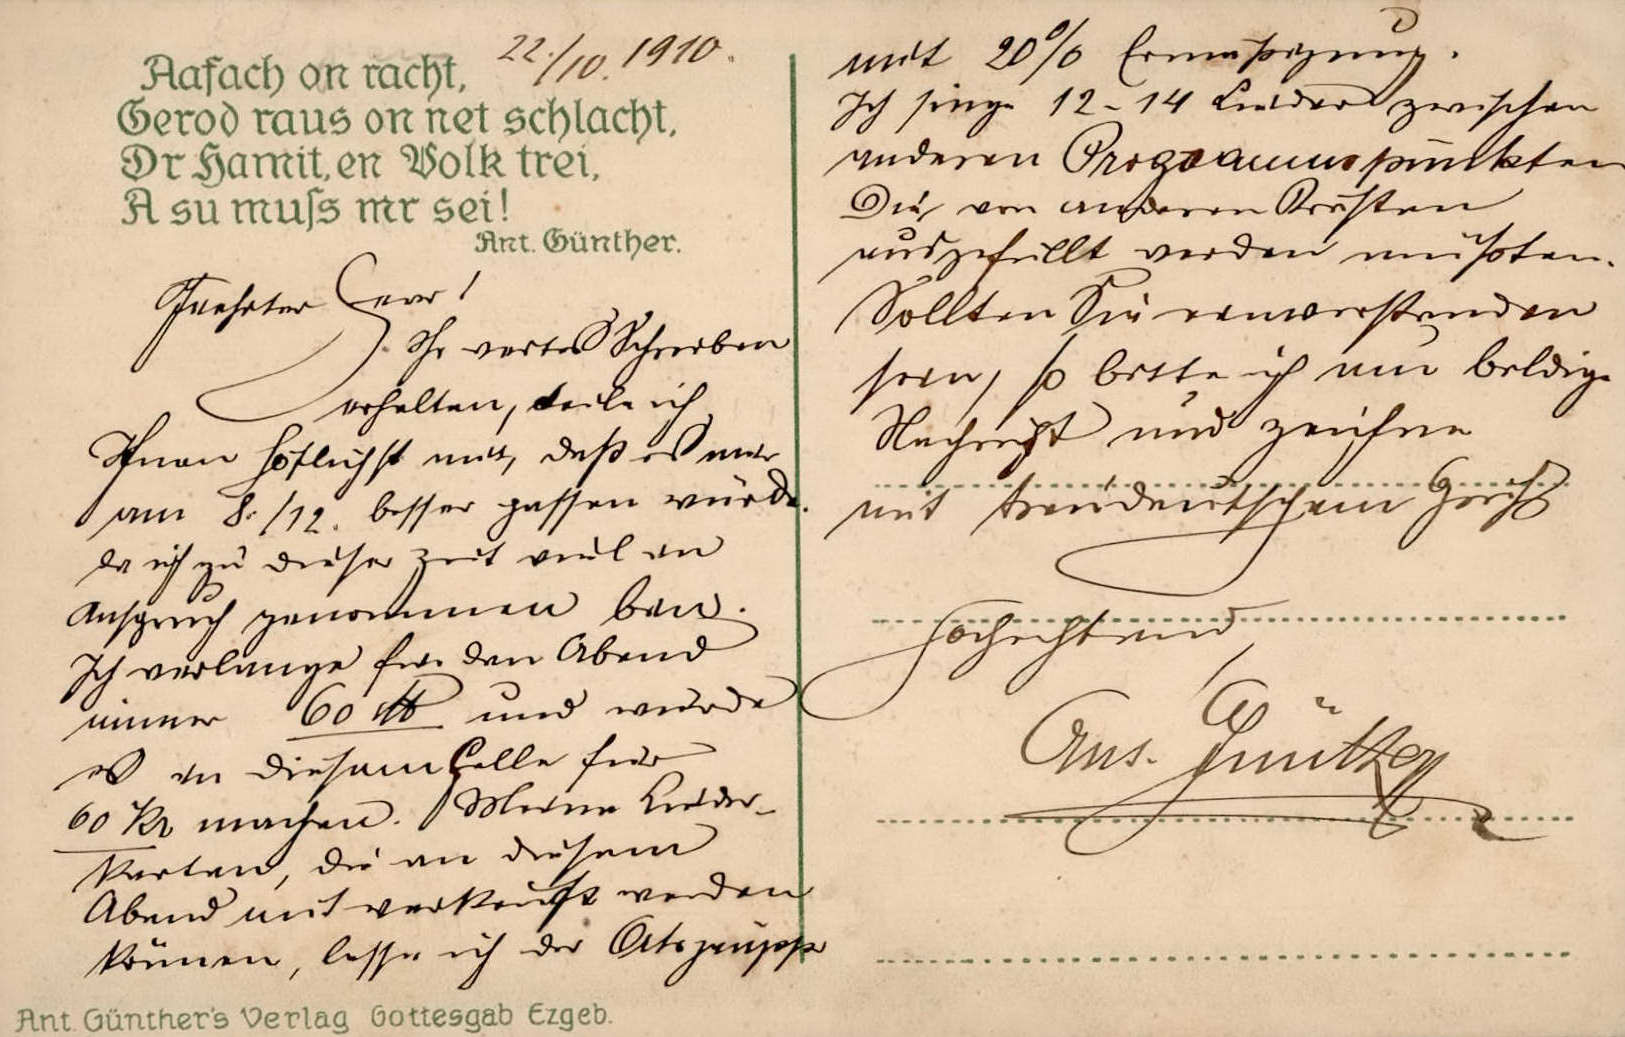 22./10. 1910.
Aafach on racht,
Gerod raus on net schlacht,
Dr Hamit, en Volk trei,
A su muſs mr sei!
Ant. Günther.
Geehrter Herr!
Ihr wertes Schreiben
erhalten, teile ich
Ihnen höflichst mit, daß es mir
am 8./12. besser passen würde.
da ich zu dieser Zeit viel in
Anspruch genommen bin.
Ich verlange für den Abend
immer 60 M und würde
es in diesem Falle für
60 Kr machen. Meine Lieder-
karten, die an diesem
Abend mit verkauft werden
können, lasse ich der Ortsgruppe
mit 20% Ermäßigung.
Ich singe 12-14 Lieder zwischen
anderen Programmpunkten
Die von anderen Kräften
ausgefüllt werden müßten.
Sollten Sie einverstanden
sein, so bitte ich um baldige
Nachricht und zeichne
mit treudeutschem Gruß
Hochachtend
Ant. Günther
Ant. Günther's Verlag Gottesgab Ezgeb.